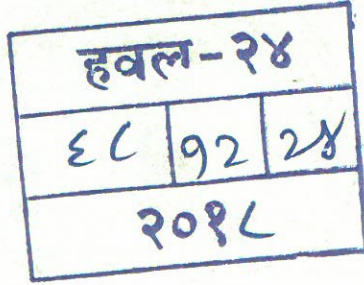 हवल-२४
६८ १२ २४
२०१८